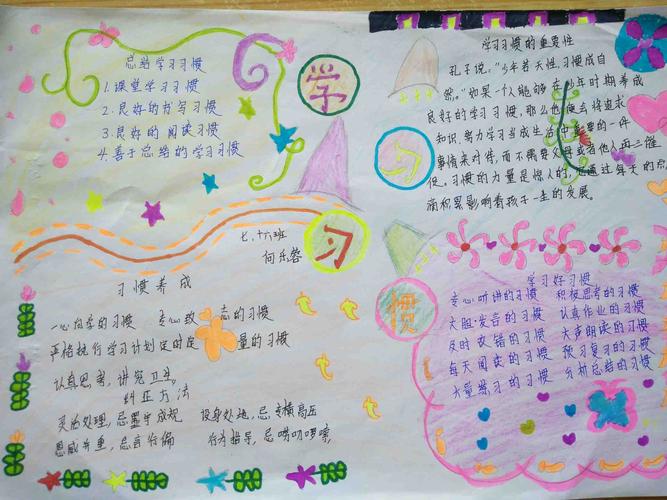 总结学习习惯
1.课堂学习习惯
2.良好的书写习惯
3.良好的阅读习惯
4.善于总结的学习习惯
学
习
习
惯
学习习惯的重要性
孔子说:"少年若天性,习惯成自
然。"如果一个人能够在少年时期养成
良好的学习习惯,那么他便会将追求
知识,努力学习当成生活中重要的一件
事情来对待,而不需要父母或者他人再三催
促。习惯的力量是惊人的,它通过每天的点
滴积累影响着孩子一生的发展。
七、十六班
何乐蓉
习惯养成
一心向学的习惯 专心致志的习惯
严格执行学习计划定时定量的习惯
认真思考,讲究卫生。
纠正方法
灵活处理,忌墨守成规 设身处地,忌专横高压
恩威并重,忌言行偏 行为指导,忌唠叨啰嗦
学习好习惯
专心听讲的习惯 积极思考的习惯
大胆发言的习惯 认真作业的习惯
及时改错的习惯 大声朗读的习惯
每天阅读的习惯 预习复习的习惯
大量练习的习惯 分析总结的习惯